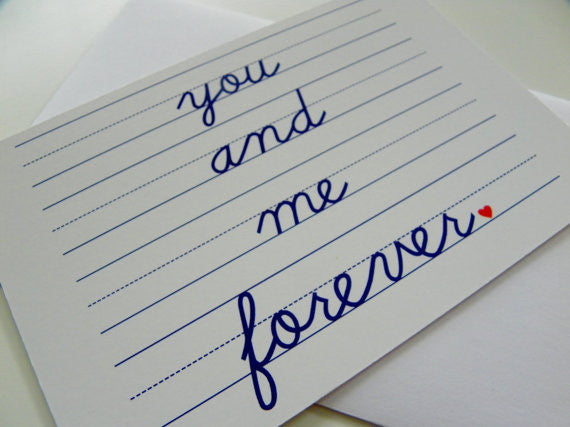 you
and
me
forever